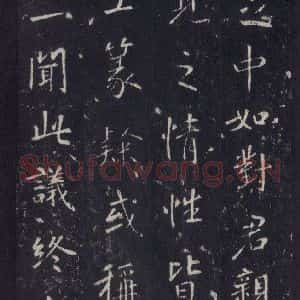 中如對君親
見之情性皆
工篆辞或稱
一聞此議終
Shufawang.CN